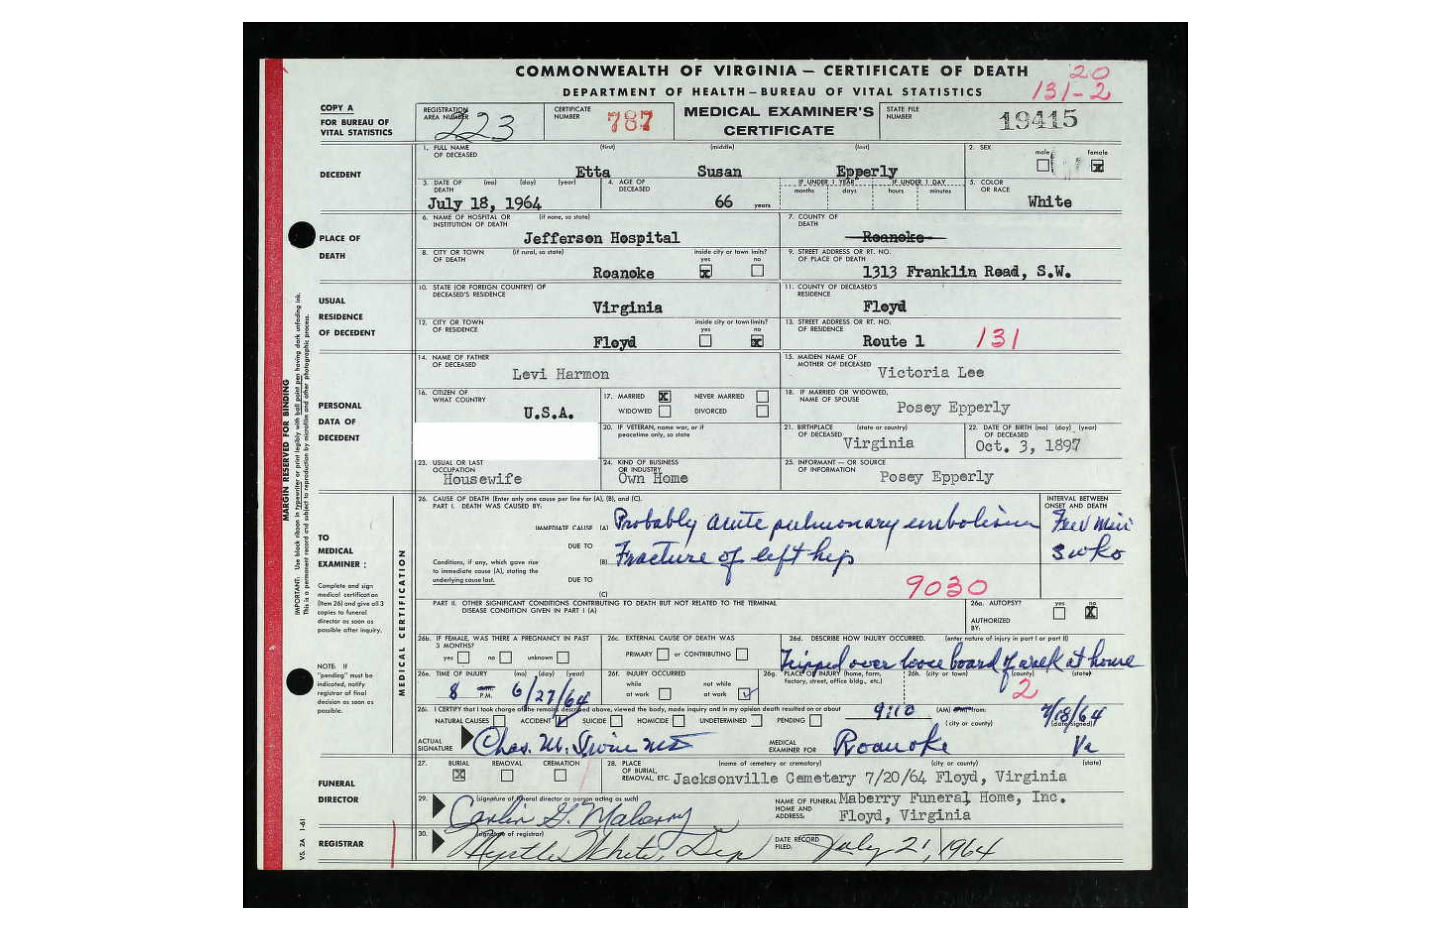 COMMONWEALTH OF VIRGINIA — CERTIFICATE OF DEATH 20
DEPARTMENT OF HEALTH — BUREAU OF VITAL STATISTICS 131-2
COPY A
FOR BUREAU OF
VITAL STATISTICS
REGISTRATION
AREA NUMBER 223
CERTIFICATE
NUMBER 787
MEDICAL EXAMINER'S
CERTIFICATE
STATE FILE
NUMBER 19415
DECEDENT
1. FULL NAME (first) (middle) (last)
OF DECEASED
Etta Susan Epperly
2. SEX
male female
x
3. DATE OF (mo) (day) (year)
DEATH
July 18, 1964
4. AGE OF
DECEASED
66 years
IF UNDER 1 YEAR IF UNDER 1 DAY
months days hours minutes
5. COLOR
OR RACE
White
PLACE OF
DEATH
6. NAME OF HOSPITAL OR (if none, so state)
INSTITUTION OF DEATH
Jefferson Hospital
7. COUNTY OF
DEATH
Roanoke
8. CITY OR TOWN (if rural, so state) inside city or town limits?
OF DEATH yes no
Roanoke x
9. STREET ADDRESS OR RT. NO.
OF PLACE OF DEATH
1313 Franklin Road, S.W.
USUAL
RESIDENCE
OF DECEDENT
10. STATE (OR FOREIGN COUNTRY) OF
DECEASED'S RESIDENCE
Virginia
11. COUNTY OF DECEASED'S
RESIDENCE
Floyd
12. CITY OR TOWN inside city or town limits?
OF RESIDENCE yes no
Floyd x
13. STREET ADDRESS OR RT. NO.
OF RESIDENCE
Route 1 131
PERSONAL
DATA OF
DECEDENT
14. NAME OF FATHER
OF DECEASED
Levi Harmon
15. MAIDEN NAME OF
MOTHER OF DECEASED
Victoria Lee
16. CITIZEN OF
WHAT COUNTRY
U.S.A.
17. MARRIED x NEVER MARRIED
WIDOWED DIVORCED
18. IF MARRIED OR WIDOWED,
NAME OF SPOUSE
Posey Epperly
20. IF VETERAN, name war, or if
peacetime only, so state
21. BIRTHPLACE (state or country)
OF DECEASED
Virginia
22. DATE OF BIRTH (mo) (day) (year)
OF DECEASED
Oct. 3, 1897
23. USUAL OR LAST
OCCUPATION
Housewife
24. KIND OF BUSINESS
OR INDUSTRY
Own Home
25. INFORMANT — OR SOURCE
OF INFORMATION
Posey Epperly
MARGIN RESERVED FOR BINDING
IMPORTANT: Use black ribbon in typewriter or print legibly with ball point pen having dark unfading ink.
This is a permanent record and subject to reproduction by microfilm and other photographic process.
TO
MEDICAL
EXAMINER:
Complete and sign
medical certification
(Item 26) and give all 3
copies to funeral
director as soon as
possible after inquiry.
NOTE: IF
"pending" must be
indicated, notify
registrar of final
decision as soon as
possible.
MEDICAL CERTIFICATION
26. CAUSE OF DEATH (Enter only one cause per line for (A), (B), and (C).
PART I. DEATH WAS CAUSED BY:
INTERVAL BETWEEN
ONSET AND DEATH
IMMEDIATE CAUSE (A) Probably acute pulmonary embolism Few min
DUE TO
(B) Fracture of left hip 3 wks
Conditions, if any, which gave rise
to immediate cause (A), stating the
underlying cause last.
DUE TO
(C)
9030
PART II. OTHER SIGNIFICANT CONDITIONS CONTRIBUTING TO DEATH BUT NOT RELATED TO THE TERMINAL
DISEASE CONDITION GIVEN IN PART I (A)
26a. AUTOPSY? yes no
x
AUTHORIZED
BY:
26b. IF FEMALE, WAS THERE A PREGNANCY IN PAST
3 MONTHS?
yes no unknown
26c. EXTERNAL CAUSE OF DEATH WAS
PRIMARY or CONTRIBUTING
26d. DESCRIBE HOW INJURY OCCURRED. (enter nature of injury in part I or part II)
Tripped over loose board of walk at home
26e. TIME OF INJURY (mo) (day) (year)
8 P.M. 6/27/64
26f. INJURY OCCURRED
while not while
at work at work
26g. PLACE OF INJURY (home, farm,
factory, street, office bldg., etc.)
26h. (city or town) (county) (state)
2
26i. I CERTIFY that I took charge of the remains described above, viewed the body, made inquiry and in my opinion death resulted on or about 9:10 (AM) from:
NATURAL CAUSES ACCIDENT SUICIDE HOMICIDE UNDETERMINED PENDING
(city or county) (date signed)
7/18/64
ACTUAL
SIGNATURE Chas. M. Irvin MD
MEDICAL
EXAMINER FOR Roanoke Va
FUNERAL
DIRECTOR
27. BURIAL REMOVAL CREMATION
x
28. PLACE (name of cemetery or crematory) (city or county) (state)
OF BURIAL,
REMOVAL, ETC. Jacksonville Cemetery 7/20/64 Floyd, Virginia
29. (signature of funeral director or person acting as such)
Carlin G. Maberry
NAME OF FUNERAL
HOME AND
ADDRESS:
Maberry Funeral Home, Inc.
Floyd, Virginia
VS. 2A 1-61
REGISTRAR
30. (signature of registrar)
Myrtle White, Dep
DATE RECORD
FILED: July 21, 1964